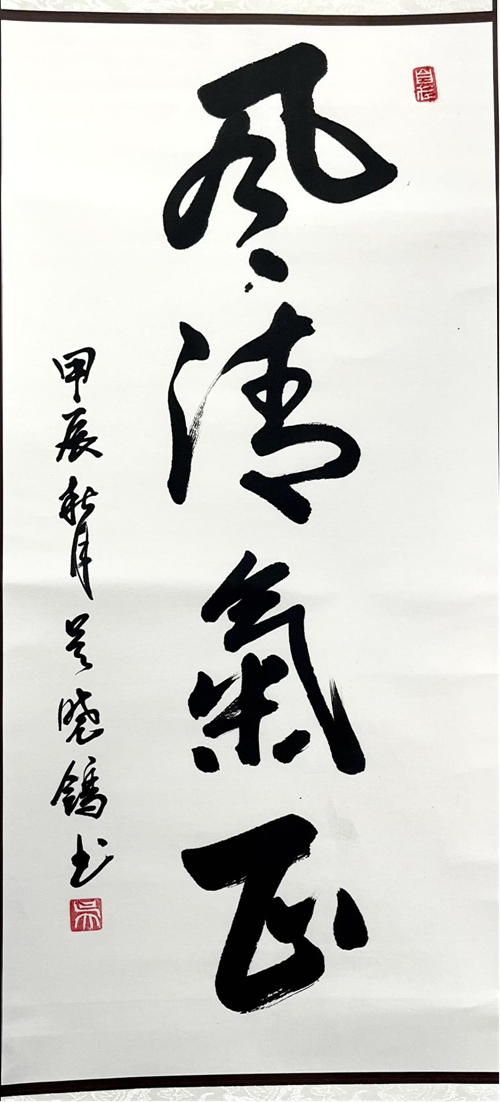 風清氣正
甲辰秋月吴晓鏞书
吴